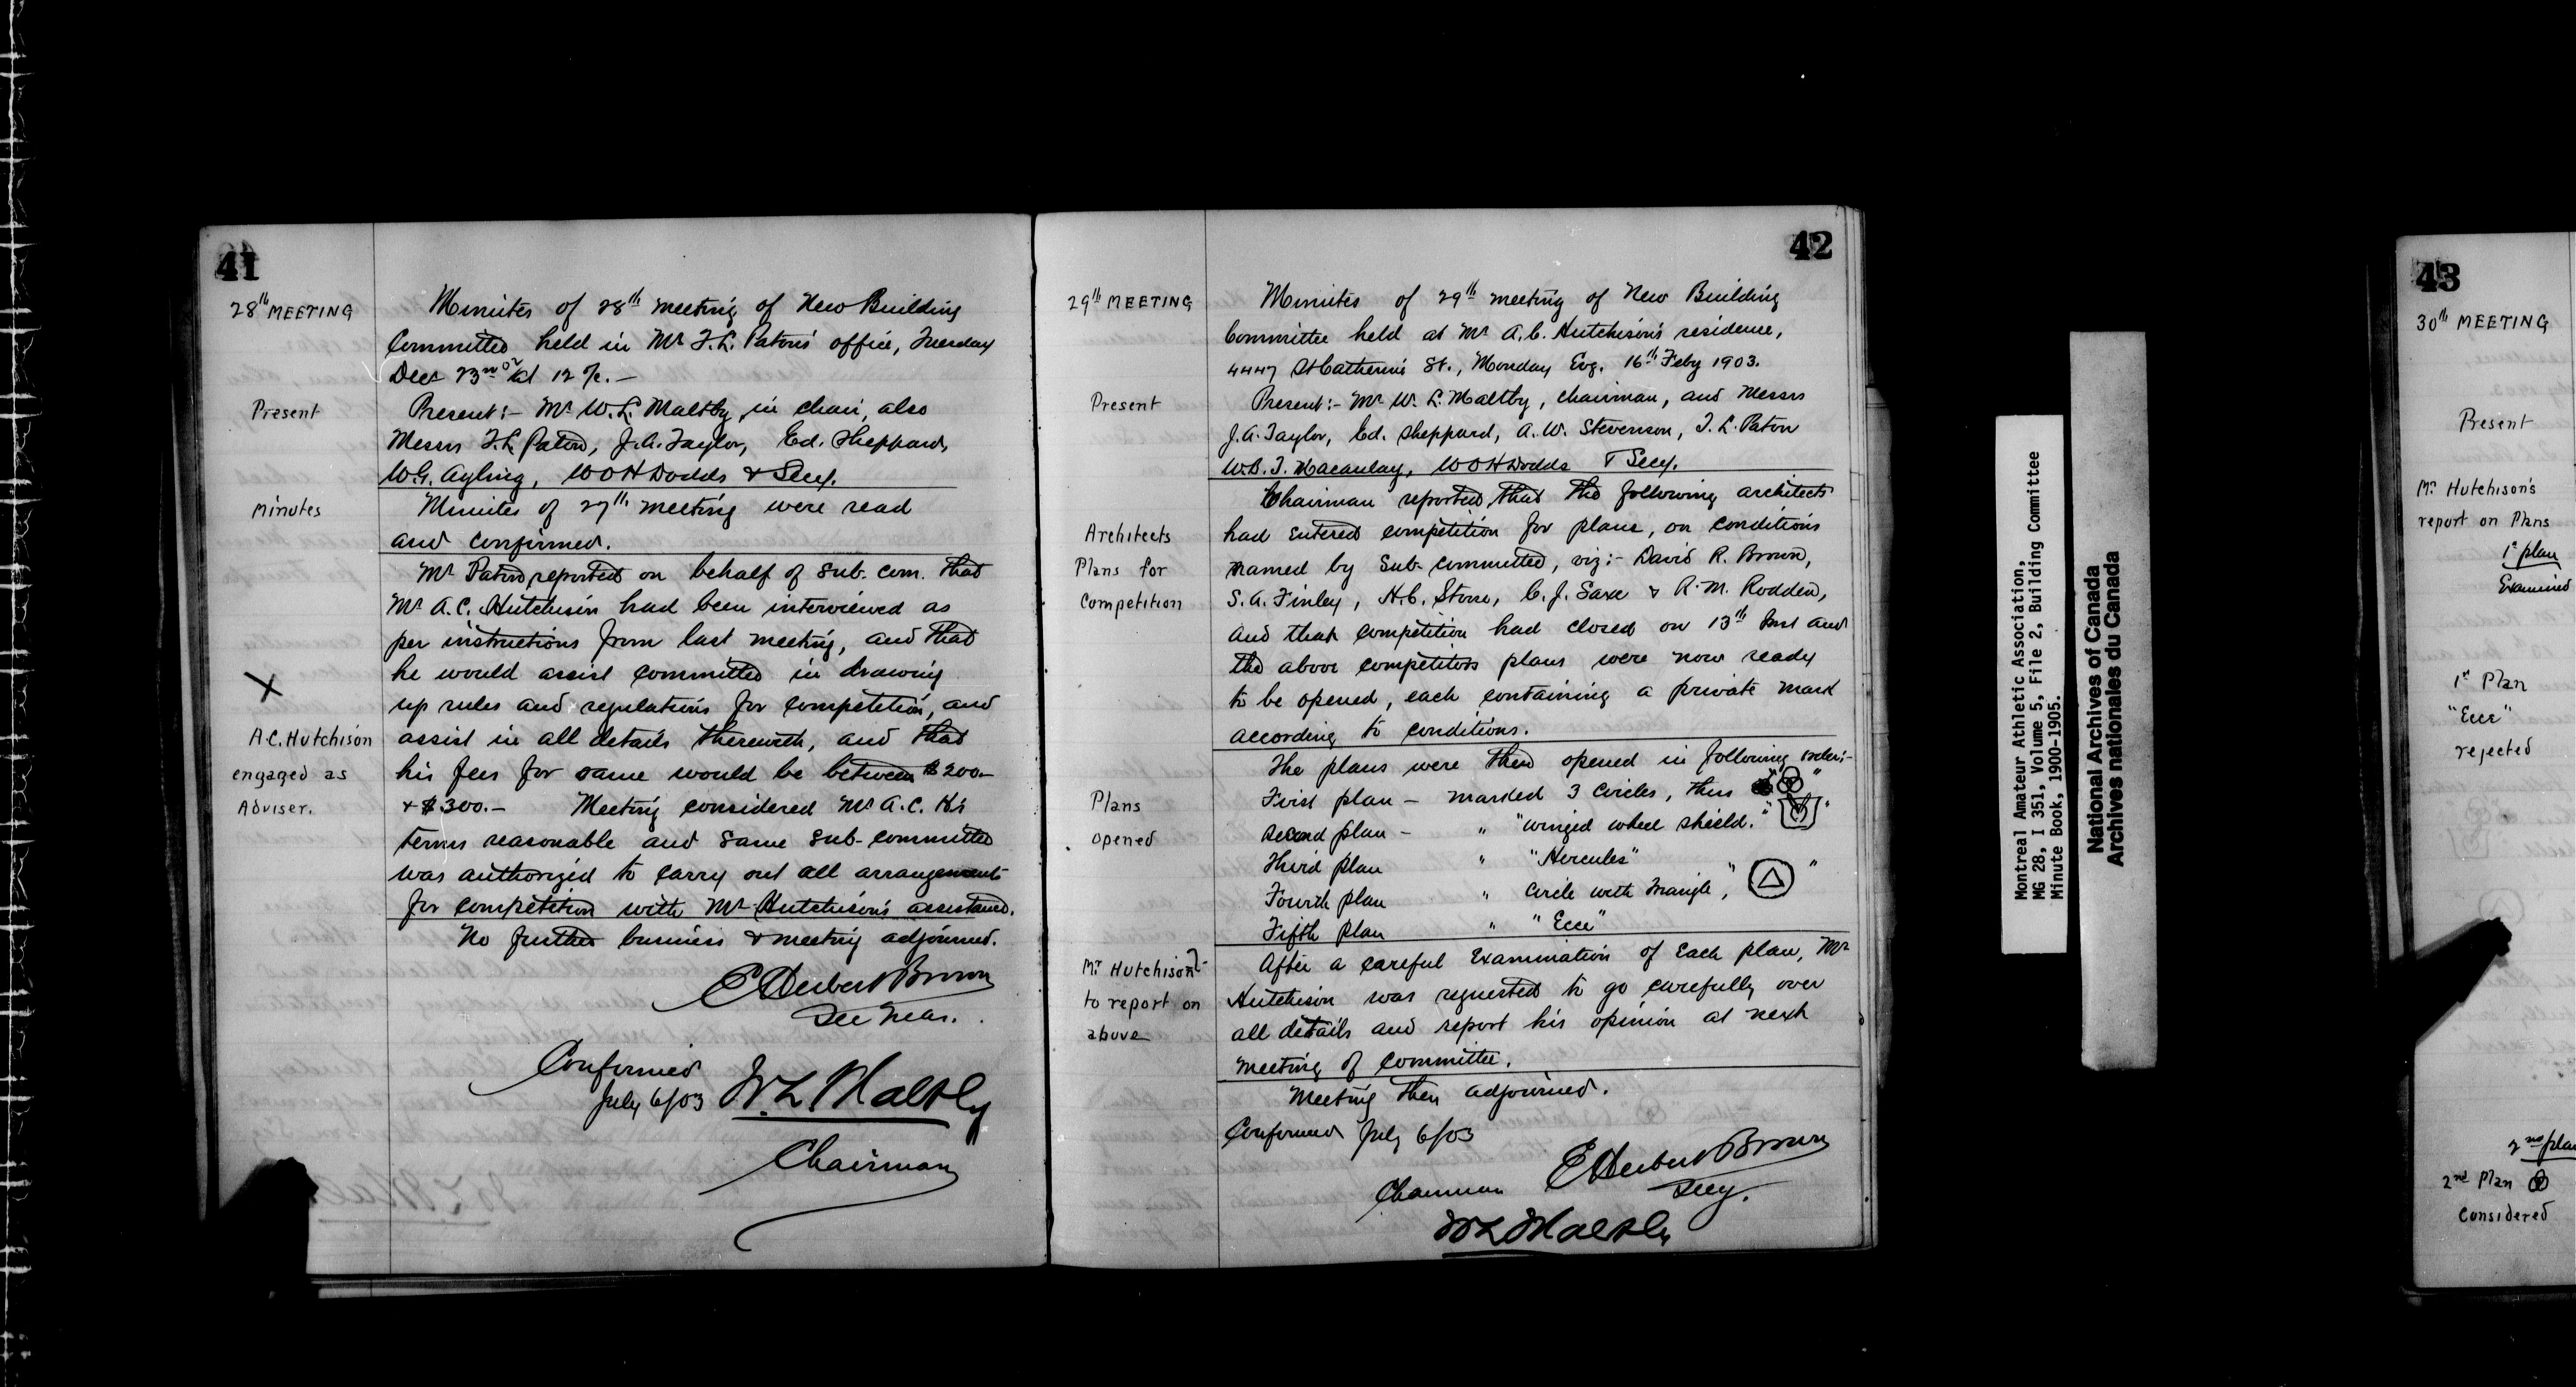 41
28th MEETING
Minutes of 28th meeting of New Building
Committee held in Mr T. L. Paton's office, Tuesday
Decr 23rd at 12
Present
Present:- Mr W. L. Maltby in chair, also
Messrs T. L. Paton, J. A. Taylor, Ed. Sheppard,
W. G. Ayling, W O H Dodds & Secy.
Minutes
Minutes of 27th meeting were read
and confirmed.
Mr Paton reported on behalf of Sub. Com. that
Mr A. C. Hutchison had been interviewed as
per instructions from last meeting, and that
he would assist committee in drawing
X
up rules and regulations for competition, and
A.C. Hutchison
assist in all details therewith, and that
engaged as
his fees for same would be between $200.—
Adviser.
& $300.— Meeting considered Mr A. C. H's
terms reasonable and same sub-committee
was authorized to carry out all arrangements
for competition with Mr Hutchison's assistance.
No further business & meeting adjourned.
E Herbert Brown
Confirmed
July 6/03 W. L. Maltby
Chairman
42
29th MEETING
Minutes of 29th meeting of New Building
Committee held at Mr A. C. Hutchison's residence,
4447 St Catherine St., Monday Evg. 16th Feby 1903.
Present
Present:- Mr W. L. Maltby, chairman, and Messrs
J. A. Taylor, Ed. Sheppard, A. W. Stevenson, T. L. Paton
W. B. T. Macaulay, W O H Dodds & Secy.
Chairman reported that the following architects
Architects
had entered competition for plans, on conditions
Plans for
named by Sub-committee, viz:- David R. Brown,
Competition
S. A. Finley, H. C. Stone, C. J. Saxe & R. M. Rodden,
and that competition had closed on 13th Inst and
the above competitors plans were now ready
to be opened, each containing a private mark
according to conditions.
The plans were then opened in following order:-
Plans
First plan — marked 3 circles, thus " "
opened
Second plan — " "winged wheel shield." " "
Third plan " "Hercules"
Fourth plan " Circle with triangle, " "
Fifth plan " "Ecce"
Mr Hutchison
After a careful examination of each plan, Mr
to report on
Hutchison was requested to go carefully over
above
all details and report his opinion at next
meeting of committee.
Meeting then adjourned.
Confirmed July 6/03
E Herbert Brown
Secy.
Chairman
W L Maltby
Montreal Amateur Athletic Association,
MG 28, I 351, Volume 5, File 2, Building Committee
Minute Book, 1900-1905.
National Archives of Canada
Archives nationales du Canada
43
30th MEETING
Present
Mr Hutchison's
report on Plans
1st plan
Examined
1st Plan
"Ecce"
rejected
2nd plan
2nd Plan
Considered